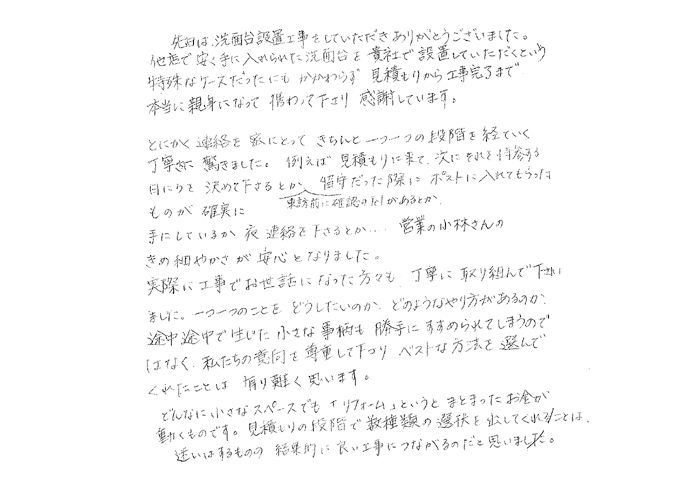 先日は、洗面台設置工事をしていただきありがとうございました。
他店で安く手に入れられた洗面台を貴社で設置していただくという
特殊なケースだったにもかかわらず 見積もりから工事完了まで
本当に親身になって 携わって下さり 感謝しています。
とにかく 連絡を 密にとって きちんと 一つ一つの段階を経ていく
丁寧さに 驚きました。 例えば 見積もりに来て、次に それを待合する
日にちを 決めて下さるとか、留守だった際に ポストに入れてもらった
東訪前に確認のtelがあるとか、
ものが 確実に
手にしているか 夜 連絡を下さるとか…. 営業の小林さんの
きめ細やかさが 安心となりました。
実際に工事でお世話になった方々も、丁寧に取り組んで下さい
ました。一つ一つのことを どうしたいのか、どのようなやり方があるのか、
途中途中で生じた 小さな事柄も 勝手に すすめられてしまうので
はなく、私たちの意向を尊重して下さり ベストな方法を選んで
くれたことは 有り難く思います。
どんなに小さなスペースでも「リフォーム」というと まとまったお金が
動くものです。見積もりの段階で 数種類の選択を出してくれることは、
迷いはするものの 結果的に良い工事につながるのだと思いました。